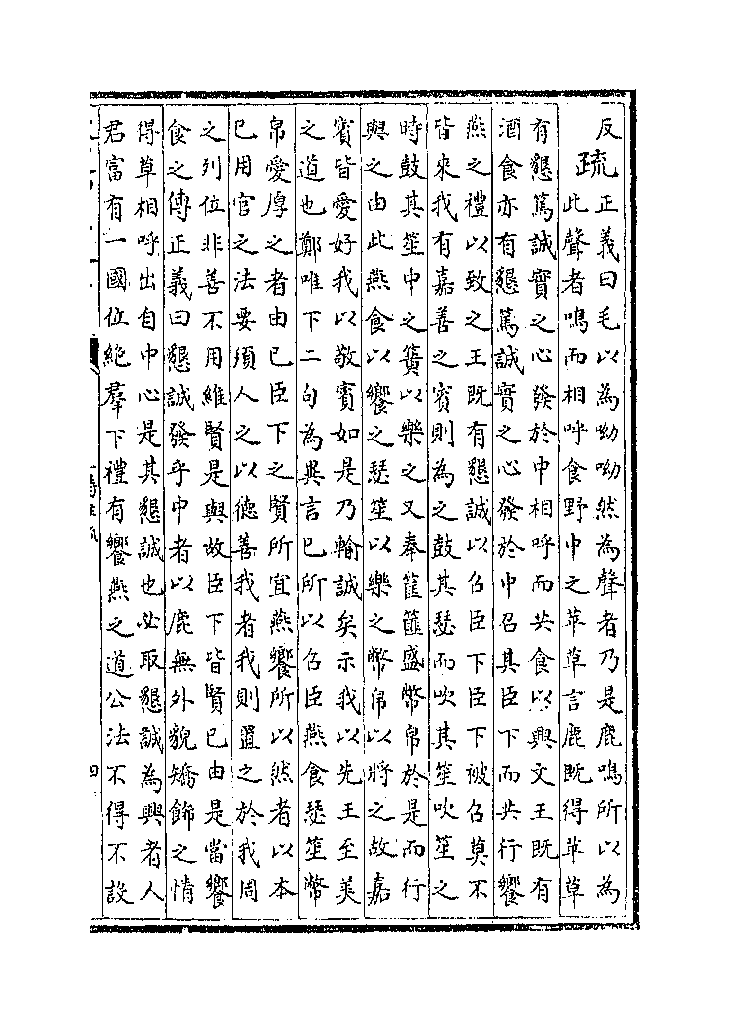 反
疏正義曰毛以為呦呦然為聲者乃是鹿鳴所以為
此聲者鳴而相呼食野中之苹草言鹿既得苹草
有懇篤誠實之心發於中相呼而共食以興文王既有
酒食亦有懇篤誠實之心發於中召其臣下而共行饗
燕之禮以致之王既有懇誠以召臣下臣下被召莫不
皆來我有嘉善之賓則為之鼓其瑟而吹其笙吹笙之
時鼓其笙中之簧以樂之又奉筐篚盛幣帛於是而行
與之由此燕食以饗之瑟笙以樂之幣帛以將之故嘉
賓皆愛好我以敬賓如是乃輸誠矣示我以先王至美
之道也鄭唯下二句為異言已所以召臣燕食瑟笙幣
帛愛厚之者由已臣下之賢所宜燕饗所以然者以本
已用官之法要須人之以德善我者我則置之於我周
之列位非善不用維賢是與故臣下皆賢已由是當饗
食之傳正義曰懇誠發乎中者以鹿無外貌矯飾之情
得草相呼出自中心是其懇誠也必取懇誠為興者人
君富有一國位絶羣下禮有饗燕之道公法不得不設
四